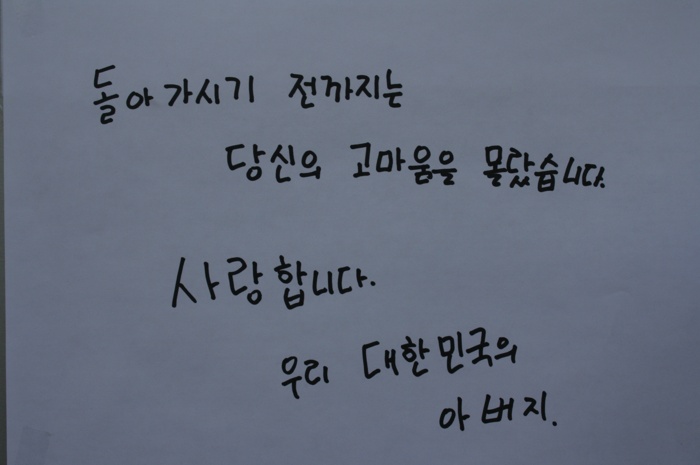 돌아가시기 전까지는
당신의 고마움을 몰랐습니다.
사랑합니다.
우리 대한민국의
아버지.